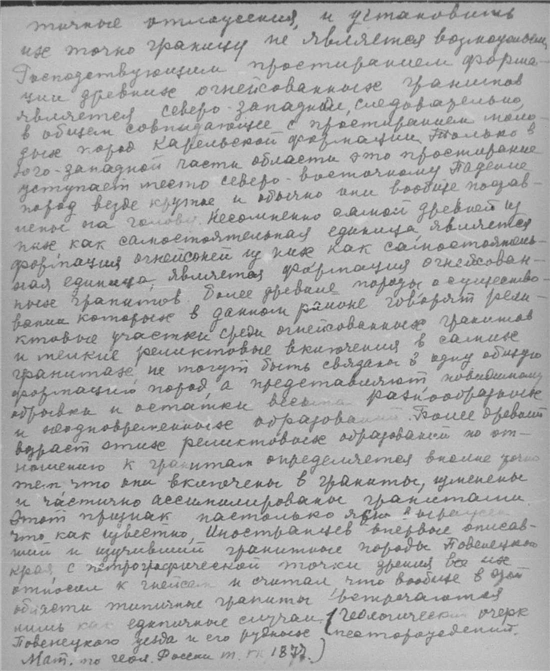 точные отношения, и установить
их точно границу не является возможным.
Господствующим простиранием форма-
ции древних огнейсованных гранитов
является северо-западный, следовательно,
в общем совпадающее с простиранием моло-
дых пород Карельской формации. Только в
юго-западной части области это простирание
уступает место северо-восточному. Падение
пород везде крутое и обычно они вообще постав-
лены на головы. Несомненно самой древней из
них как самостоятельная единица является
формация огнейсоней из них как самостоятель-
ная единица, является формация огнейсован-
ных гранитов. Более древние породы о существо-
вании которых в данном районе говорят рели-
ктовые участки среди огнейсованных гранитов
и мелкие реликтовые включения в самих
гранитах, не могут быть связаны в одну общую
формацию пород, а представляют повидимому
обрывки и остатки весьма разнообразных
и неодновременных образований. Более древний
возраст этих реликтовых образований по от-
ношению к гранитам определяется вполне точно
тем что они включены в граниты, изменены
и частично ассимилированы гранитами
Этот признак настолько ярко выражен
что, как известно, Иностранцев впервые описав-
ший и изучивший гранитные породы Повенецкого
края с петрографической точки зрения все их
относил к гнейсам и считал что вообще в этой
области типичные граниты встречаются
лишь как единичные случаи (геологический очерк
Повенецкого уезда и его рудных месторождений.
Мат. по геол. России т. VII 1877)